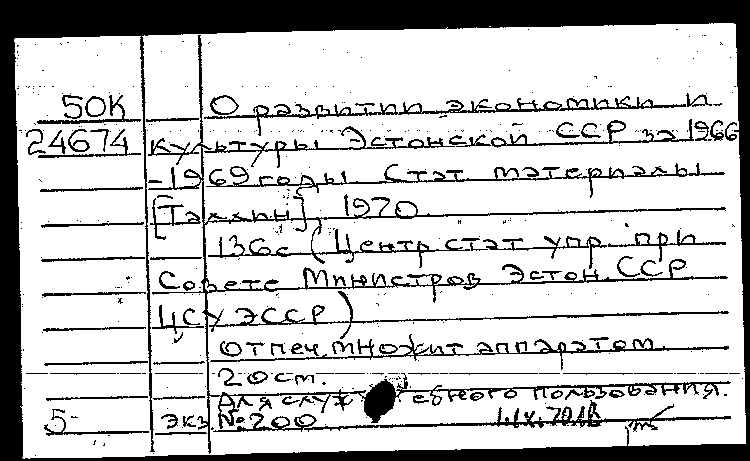 50К О развитии экономики и
24674 культуры Эстонской ССР за 1966
-1969 годы. Стат материалы
[Таллин], 1970.
136с (Центр стат упр. при
Совете Министров Эстон. ССР
ЦСУ ЭССР)
Отпеч. множит аппаратом.
20см.
Для служебного пользования.
5- экз №200 1.IX.70